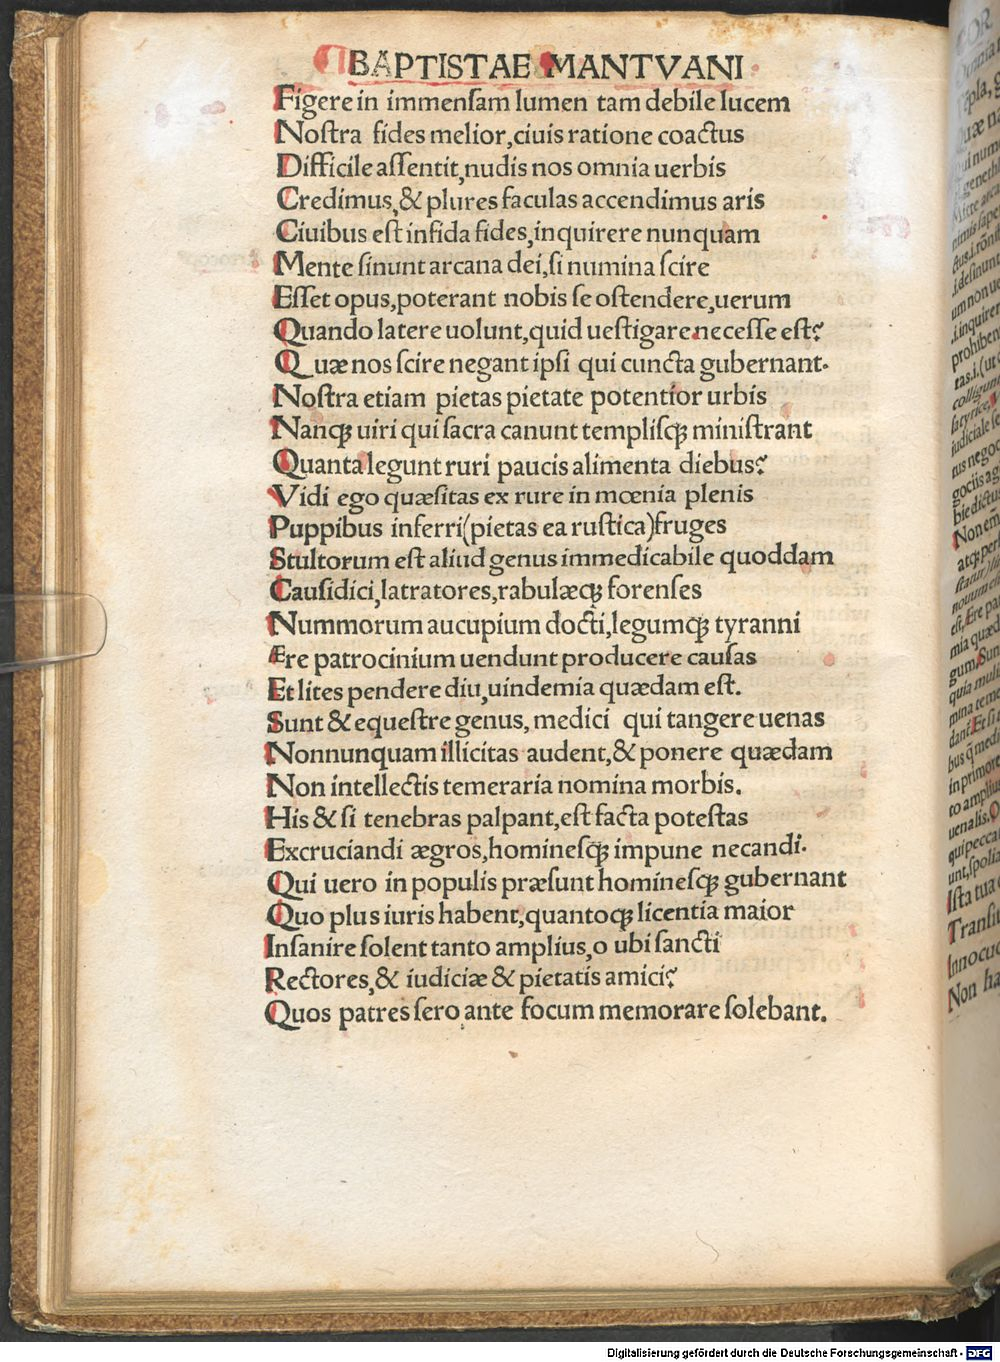 BAPTISTAE MANTVANI
Figere in immenſam lumen tam debile lucem
Noſtra fides melior,ciuis ratione coactus
Difficile aſſentit,nudis nos omnia uerbis
Credimus,& plures faculas accendimus aris
Ciuibus eſt infida fides,inquirere nunquam
Mente ſinunt arcana dei,ſi numina ſcire
Eſſet opus,poterant nobis ſe oſtendere,uerum
Quando latere uolunt,quid ueſtigare neceſſe eſt?
Quæ nos ſcire negant ipſi qui cuncta gubernant.
Noſtra etiam pietas pietate potentior urbis
Nanqꝫ uiri qui ſacra canunt templiſqꝫ miniſtrant
Quanta legunt ruri paucis alimenta diebus?
Vidi ego quæſitas ex rure in mœnia plenis
Puppibus inferri(pietas ea ruſtica)fruges
Stultorum eſt aliud genus immedicabile quoddam
Cauſidici,latratores,rabulæqꝫ forenſes
Nummorum aucupium docti,legumqꝫ tyranni
Ære patrocinium uendunt producere cauſas
Et lites pendere diu,uindemia quædam eſt.
Sunt & equeſtre genus, medici qui tangere uenas
Nonnunquam illicitas audent,& ponere quædam
Non intellectis temeraria nomina morbis.
His & ſi tenebras palpant,eſt facta poteſtas
Excruciandi ægros,homineſqꝫ impune necandi.
Qui uero in populis præſunt homineſqꝫ gubernant
Quo plus iuris habent,quantoqꝫ licentia maior
Inſanire ſolent tanto amplius,o ubi ſancti
Rectores,& iudiciæ & pietatis amici?
Quos patres ſero ante focum memorare ſolebant.
Digitalisierung gefördert durch die Deutsche Forschungsgemeinschaft - DFG